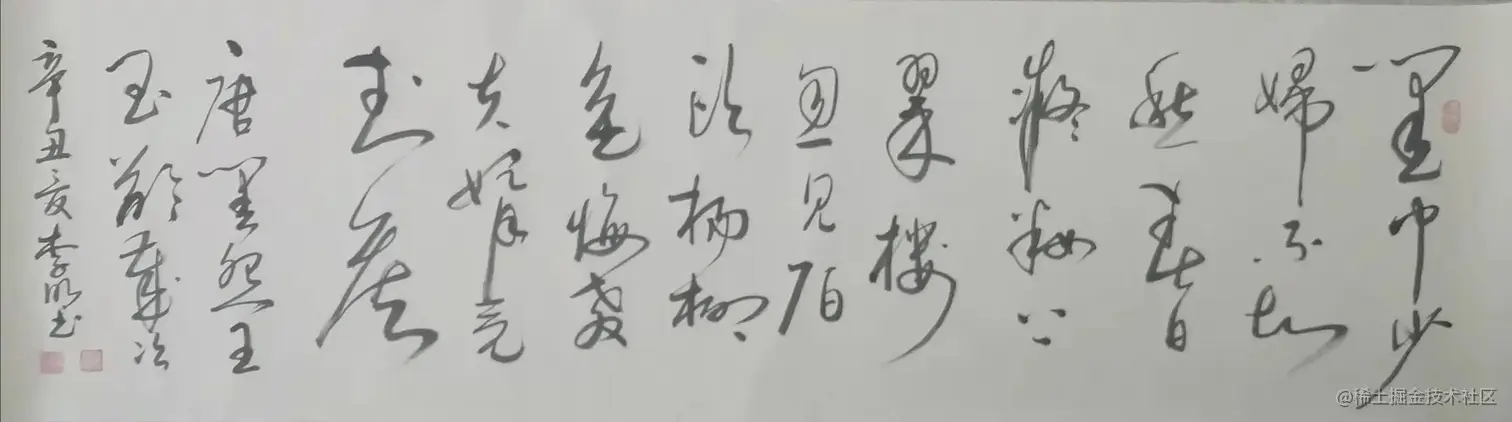 闺中少
婦不知
愁春日
凝粧上
翠楼
忽见陌
头杨柳
色悔教
夫婿觅
封侯
唐闺怨王
昌龄歲次
辛丑夏李明书
@稀土掘金技术社区